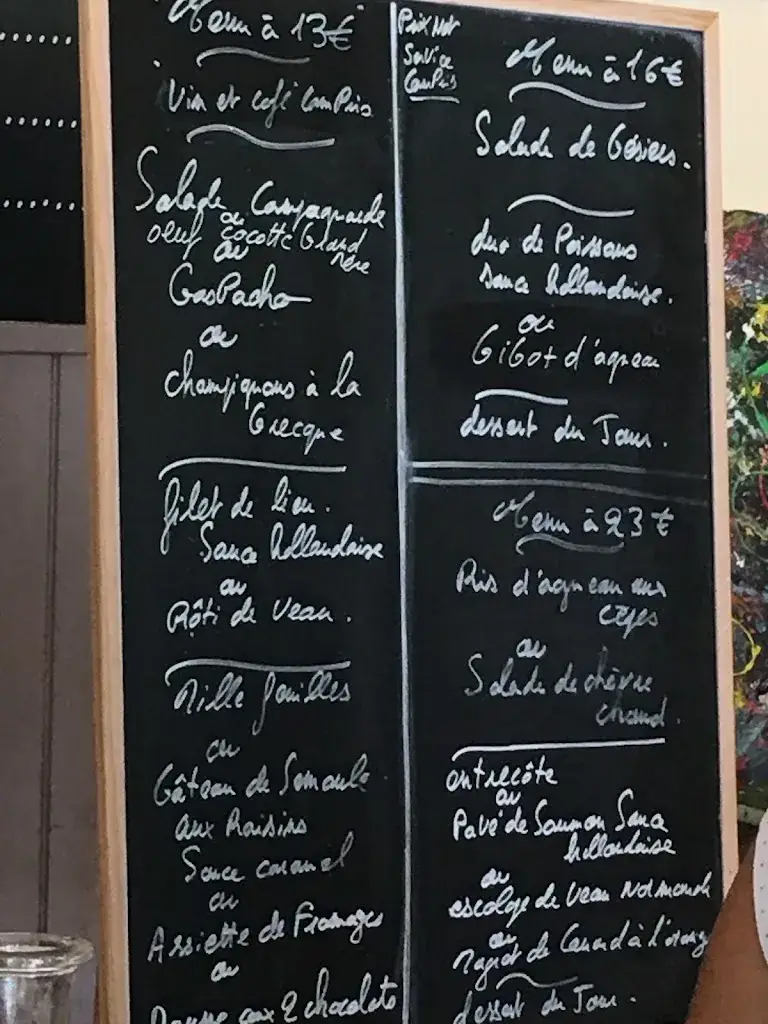 "Menu à 13€"
"Vin et café Compris
Salade Campagnarde
ou
oeuf cocotte Grand
mère
ou
GasPacho
ou
champignons à la
Grecque
filet de lieu.
Sauce hollandaise
ou
Rôti de veau.
Mille feuilles
ou
Gâteau de Semoule
aux Raisins
Sauce caramel
ou
Assiette de Fromages
ou
Mousse aux 2 chocolats
Prix Net
Service
Compris
Menu à 16€
Salade de Gésiers.
duo de Poissons
sauce hollandaise.
ou
GiGot d'agneau
dessert du Jour.
Menu à 23€
Ris d'agneau aux
cèpes
ou
Salade de chèvre
chaud.
entrecôte
ou
Pavé de Saumon Sauce
hollandaise
ou
escalope de Veau Normande
ou
magret de Canard à l'orange
dessert du Jour.